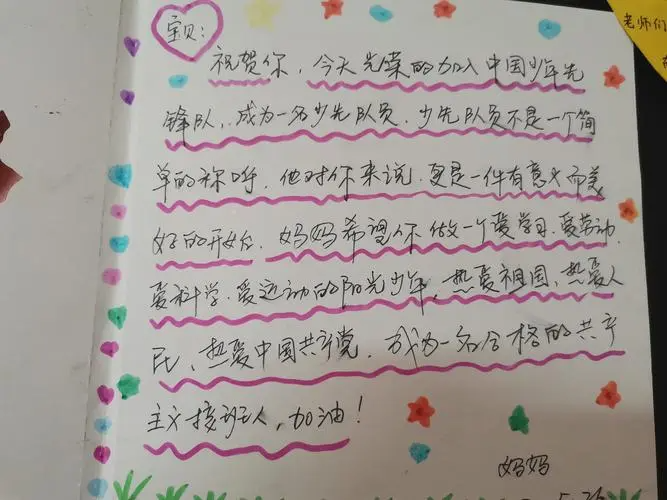 老师们
宝贝:
祝贺你,今天光荣的加入中国少年先
锋队,成为一名少先队员.少先队员不是一个简
单的称呼.他对你来说.更是一件有意义而美
好的开始.妈妈希望你做一个爱学习.爱劳动.
爱科学.爱运动的阳光少年,热爱祖国、热爱人
民、热爱中国共产党.成为一名合格的共产
主义接班人,加油!
妈妈